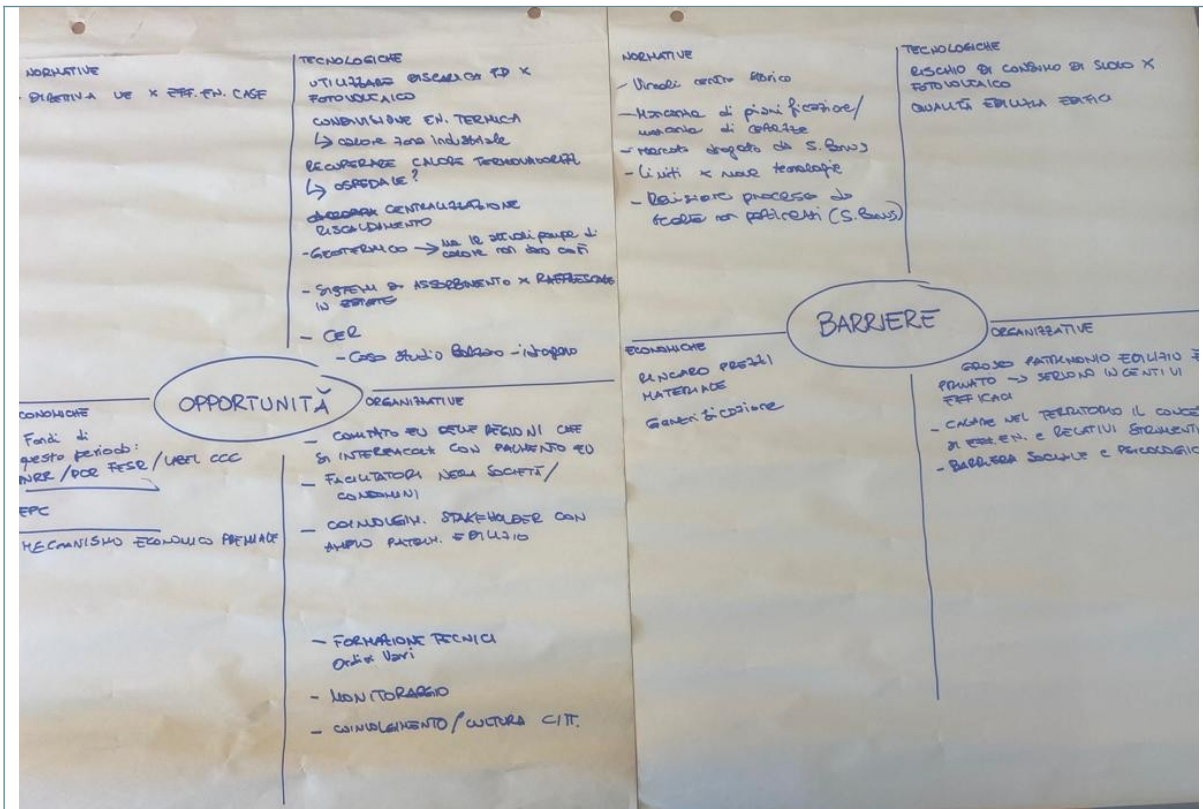 NORMATIVE
- DIRETTIVA UE X EFF. EN. CASE
TECNOLOGICHE
UTILIZZARE DISCARICA X
FOTOVOLTAICO
CONDIVISIONE EN. TERMICA
↳ calore zona industriale
RECUPERARE CALORE
↳ OSPEDALE?
CENTRALIZZAZIONE
RISCALDAMENTO
- GEOTERMICO → ma le attuali pompe di
calore non
- SISTEMI DI ASSORBIMENTO X
IN ESTATE
- CER
- Caso studio
OPPORTUNITÀ
CONOMICHE
Fondi di
questo periodo:
NRR / POR FESR / LABEL CCC
EPC
MECCANISMO ECONOMICO PREMIALE
ORGANIZZATIVE
- COMITATO EU DELLE REGIONI CHE
SI INTERFACCIA CON PALMENTO EU
- FACILITATORI NELLA SOCIETÀ/
CONDOMINI
- COINVOLGIM. STAKEHOLDER CON
AMPIO PATRIM. EDILIZIO
- FORMAZIONE TECNICI
Ordini Vari
- MONITORAGGIO
- COINVOLGIMENTO / CULTURA CITT.
NORMATIVE
- Vincoli centro storico
- Mancanza di pianificazione/
mancanza di certezze
- mercato drogato da S. Bonus
- Limiti x nuove tecnologie
- Revisione processo da
scelte non (S. Bonus)
TECNOLOGICHE
RISCHIO DI CONSUMO DI SUOLO X
FOTOVOLTAICO
QUALITÀ EDILIZIA EDIFICI
BARRIERE
ECONOMICHE
RINCARO PREZZI
MATERIALE
Gentrificazione
ORGANIZZATIVE
GROSSO PATRIMONIO EDILIZIO È
PRIVATO → SERVONO INCENTIVI
EFFICACI
- CALARE NEL TERRITORIO IL CONCE
DI EFF. EN. e RELATIVI STRUMENTI
- BARRIERA SOCIALE e PSICOLOGIC